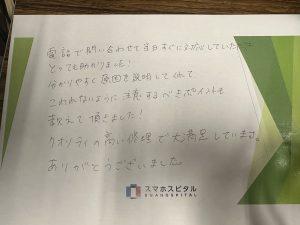 電話で問い合わせて当日すぐに対応していただき
とっても助かりました!
分かりやすく原因を説明してくれて
こわれないように注意するべきポイントも
教えて頂きました!
クオリティの高い修理で大満足しています。
ありがとうございました。
スマホスピタル
SUMAHOSPITAL